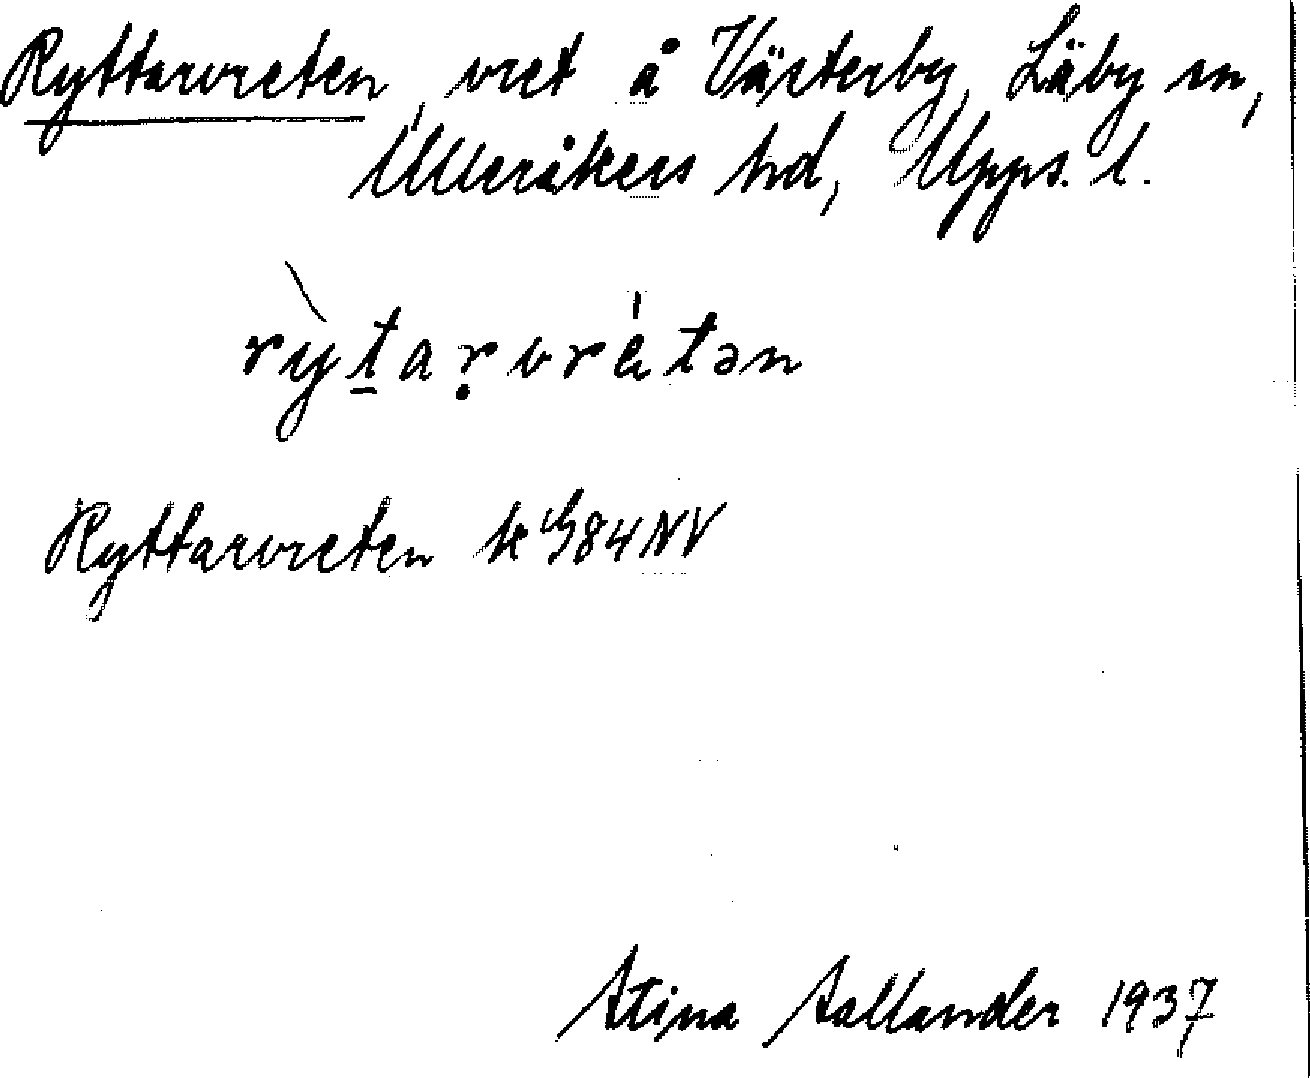 Ryttarvreten, vret å Västerby, Läby sn,
Ulleråkers hd, Upps. l.
rỳt̠aṛvrètən
Ryttarvreten k 984 NV
Stina Sallander 1937